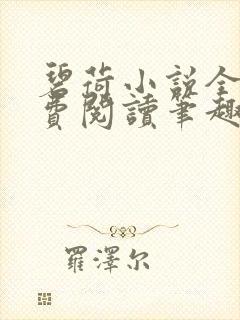 碧荷小說全
費閱讀筆趣
羅澤尔